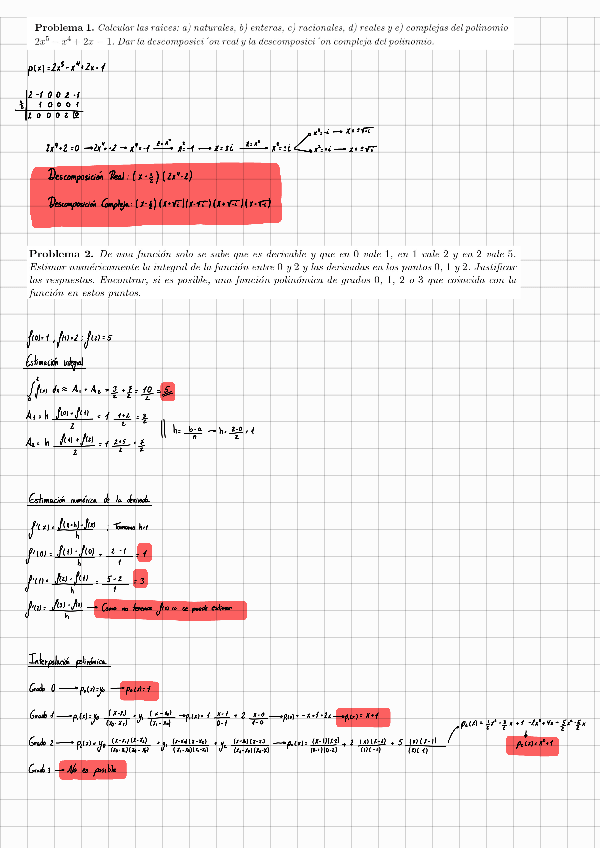 Problema 1. Calcular las raices: a) naturales, b) enteras, c) racionales, d) reales y e) complejas del polinomio
2x⁵ − x⁴ + 2x − 1. Dar la descomposici´on real y la descomposici´on compleja del polinomio.
p(x) = 2x⁵ - x⁴ + 2x - 1
2 -1 0 0 2 -1
1/2 1 0 0 0 1
2 0 0 0 2 0
2x⁴+2=0 → 2x⁴=-2 → x⁴=-1 → z²=-1 → z=±i → x²=±i
x²=-i → x=±√-i
x²=+i → x=±√i
Descomposición Real: (x-1/2)(2x⁴+2)
Descomposición Compleja: (x-1/2)(x+√i)(x-√i)(x+√-i)(x-√-i)
Problema 2. De una función solo se sabe que es derivable y que en 0 vale 1, en 1 vale 2 y en 2 vale 5.
Estimar numéricamente la integral de la función entre 0 y 2 y las derivadas en los puntos 0, 1 y 2. Justificar
las respuestas. Encontrar, si es posible, una función polinómica de grados 0, 1, 2 o 3 que coincida con la
función en estos puntos.
f(0)=1 ; f(1)=2 ; f(2)=5
Estimación integral
∫₀² f(x) dx ≈ A₁ + A₂ = 3/2 + 7/2 = 10/2 = 5
A₁ = h (f(0)+f(1))/2 = 1 (1+2)/2 = 3/2
|| h = (b-a)/n → h = (2-0)/2 = 1
A₂ = h (f(1)+f(2))/2 = 1 (2+5)/2 = 7/2
Estimación numérica de la derivada
f'(x) = (f(x+h)-f(x))/h ; Tomamos h=1
f'(0) = (f(1)-f(0))/h = (2-1)/1 = 1
f'(1) = (f(2)-f(1))/h = (5-2)/1 = 3
f'(2) = (f(3)-f(2))/h → Como no tenemos f(3) no se puede estimar
Interpolación polinómica
Grado 0 → p₀(x)=y₀ → p₀(x)=1
Grado 1 → p₁(x)=y₀ (x-x₁)/(x₀-x₁) + y₁ (x-x₀)/(x₁-x₀) → p₁(x)=1 (x-1)/(0-1) + 2 (x-0)/(1-0) → p₁(x)=-x+1+2x → p₁(x)=x+1
Grado 2 → p₂(x)=y₀ (x-x₁)(x-x₂)/(x₀-x₁)(x₀-x₂) + y₁ (x-x₀)(x-x₂)/(x₁-x₀)(x₁-x₂) + y₂ (x-x₀)(x-x₁)/(x₂-x₀)(x₂-x₁) → p₂(x)= (x-1)(x-2)/(0-1)(0-2) + 2 (x)(x-2)/(1)(-1) + 5 (x)(x-1)/(2)(1)
p₂(x)=1/2x²-3/2x+1-2x²+4x+5/2x²-5/2x
p₂(x)=x²+1
Grado 3 → No es posible